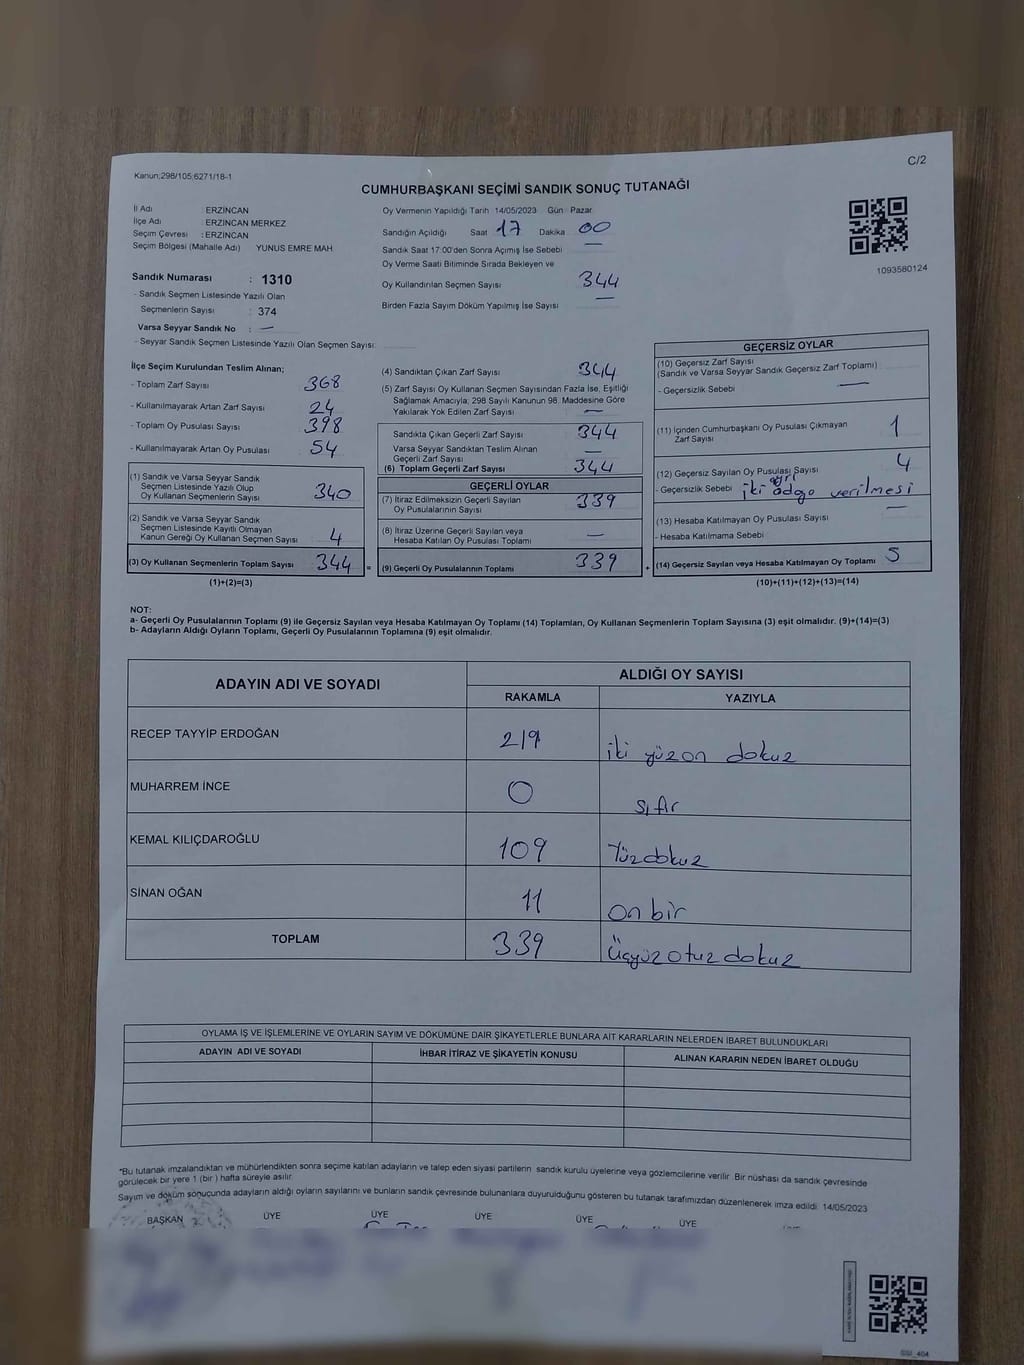 C/2
Kanun;298/105;6271/18-1
CUMHURBAŞKANI SEÇİMİ SANDIK SONUÇ TUTANAĞI
İl Adı : ERZİNCAN
İlçe Adı : ERZİNCAN MERKEZ
Seçim Çevresi : ERZİNCAN
Seçim Bölgesi (Mahalle Adı) YUNUS EMRE MAH
Sandık Numarası : 1310
- Sandık Seçmen Listesinde Yazılı Olan
Seçmenlerin Sayısı : 374
Varsa Seyyar Sandık No : —
- Seyyar Sandık Seçmen Listesinde Yazılı Olan Seçmen Sayısı:
Oy Vermenin Yapıldığı Tarih 14/05/2023 Gün Pazar
Sandığın Açıldığı Saat 17 Dakika 00
Sandık Saat 17:00'den Sonra Açımış İse Sebebi —
Oy Verme Saati Bitiminde Sırada Bekleyen ve
Oy Kullandırılan Seçmen Sayısı 344
Birden Fazla Sayım Döküm Yapılmış İse Sayısı —
1093580124
İlçe Seçim Kurulundan Teslim Alınan;
- Toplam Zarf Sayısı 368
- Kullanılmayarak Artan Zarf Sayısı 24
- Toplam Oy Pusulası Sayısı 398
- Kullanılmayarak Artan Oy Pusulası 54
(1) Sandık ve Varsa Seyyar Sandık
Seçmen Listesinde Yazılı Olup
Oy Kullanan Seçmenlerin Sayısı 340
(2) Sandık ve Varsa Seyyar Sandık
Seçmen Listesinde Kayıtlı Olmayan
Kanun Gereği Oy Kullanan Seçmen Sayısı 4
(3) Oy Kullanan Seçmenlerin Toplam Sayısı 344 =
(1)+(2)=(3)
(4) Sandıktan Çıkan Zarf Sayısı 344
(5) Zarf Sayısı Oy Kullanan Seçmen Sayısından Fazla İse, Eşitliği
Sağlamak Amacıyla; 298 Sayılı Kanunun 98. Maddesine Göre
Yakılarak Yok Edilen Zarf Sayısı —
Sandıkta Çıkan Geçerli Zarf Sayısı 344
Varsa Seyyar Sandıktan Teslim Alınan
Geçerli Zarf Sayısı —
(6) Toplam Geçerli Zarf Sayısı 344
GEÇERLİ OYLAR
(7) İtiraz Edilmeksizin Geçerli Sayılan
Oy Pusulalarının Sayısı 339
(8) İtiraz Üzerine Geçerli Sayılan veya
Hesaba Katılan Oy Pusulası Toplamı —
(9) Geçerli Oy Pusulalarının Toplamı 339 +
GEÇERSİZ OYLAR
(10) Geçersiz Zarf Sayısı
(Sandık ve Varsa Seyyar Sandık Geçersiz Zarf Toplamı)
- Geçersizlik Sebebi —
(11) İçinden Cumhurbaşkanı Oy Pusulası Çıkmayan
Zarf Sayısı 1
(12) Geçersiz Sayılan Oy Pusulası Sayısı 4
- Geçersizlik Sebebi iki ayrı verilmesi
(13) Hesaba Katılmayan Oy Pusulası Sayısı —
- Hesaba Katılmama Sebebi
(14) Geçersiz Sayılan veya Hesaba Katılmayan Oy Toplamı 5
(10)+(11)+(12)+(13)=(14)
NOT:
a- Geçerli Oy Pusulalarının Toplamı (9) ile Geçersiz Sayılan veya Hesaba Katılmayan Oy Toplamı (14) Toplamları, Oy Kullanan Seçmenlerin Toplam Sayısına (3) eşit olmalıdır. (9)+(14)=(3)
b- Adayların Aldığı Oyların Toplamı, Geçerli Oy Pusulalarının Toplamına (9) eşit olmalıdır.
ADAYIN ADI VE SOYADI ALDIĞI OY SAYISI
RAKAMLA YAZIYLA
RECEP TAYYİP ERDOĞAN 219 iki yüz on dokuz
MUHARREM İNCE 0 sıfır
KEMAL KILIÇDAROĞLU 109 Yüzdokuz
SİNAN OĞAN 11 on bir
TOPLAM 339 Üçyüz otuz dokuz
OYLAMA İŞ VE İŞLEMLERİNE VE OYLARIN SAYIM VE DÖKÜMÜNE DAİR ŞİKAYETLERLE BUNLARA AİT KARARLARIN NELERDEN İBARET BULUNDUKLARI
ADAYIN ADI VE SOYADI İHBAR İTİRAZ VE ŞİKAYETİN KONUSU ALINAN KARARIN NEDEN İBARET OLDUĞU
*Bu tutanak imzalandıktan ve mühürlendikten sonra seçime katılan adayların ve talep eden siyasi partilerin sandık kurulu üyelerine veya gözlemcilerine verilir. Bir nüshası da sandık çevresinde
görülecek bir yere 1 (bir ) hafta süreyle asılır.
Sayım ve döküm sonucunda adayların aldığı oyların sayılarını ve bunların sandık çevresinde bulunanlara duyurulduğunu gösteren bu tutanak tarafımızdan düzenlenerek imza edildi. 14/05/2023
BAŞKAN ÜYE ÜYE ÜYE ÜYE ÜYE